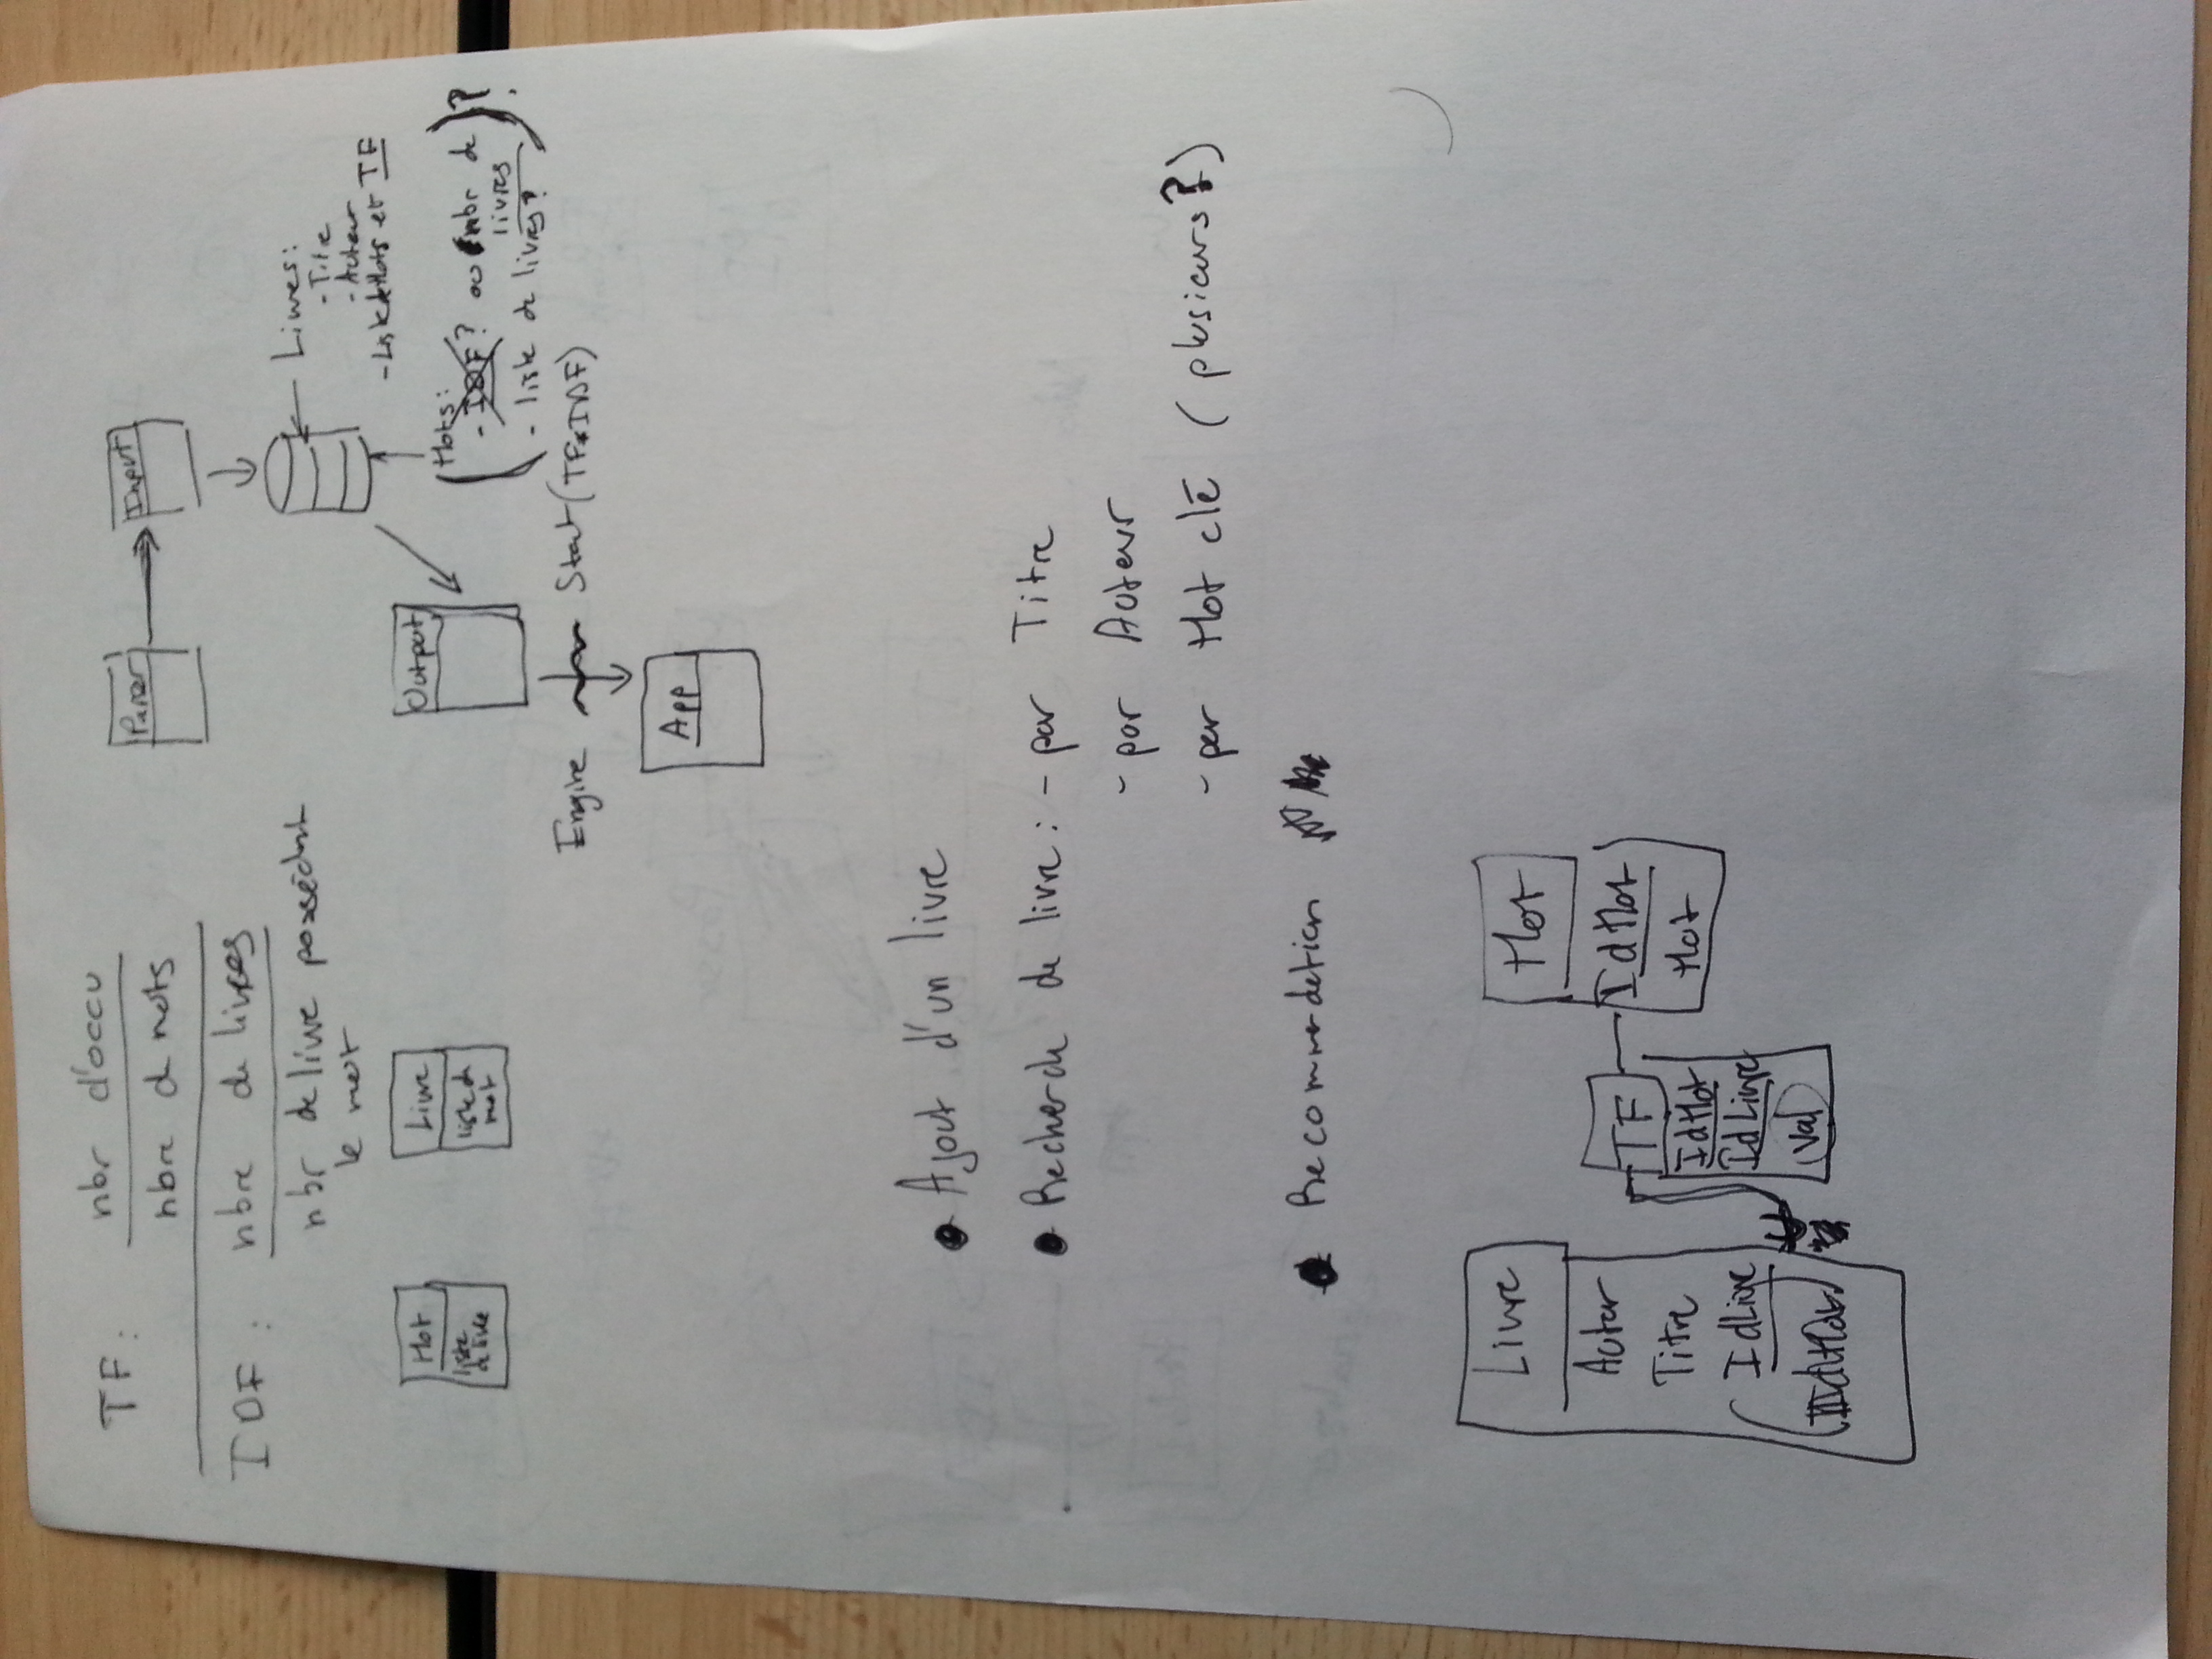 TF : nbr d'occu
nbre de mots
IDF : nbre de livres
nbr de livre possédant
le mot
Mot
liste
de livre
Livre
liste de
mot
Parser
Input
Livres:
- Titre
- Auteur
- Liste de Mots et TF
Output
Mots:
- IDF? ou nbr de
livres
- liste de livres?
?
Engine
Start (TF*IDF)
App
Ajout d'un livre
Recherche de livre : - par Titre
- par Auteur
- par Mot clé ( plusieurs ? )
Recommandation
Livre
Auteur
Titre
IdLivre
IdMot
TF
IdMot
IdLivre
Val
Mot
IdMot
Mot